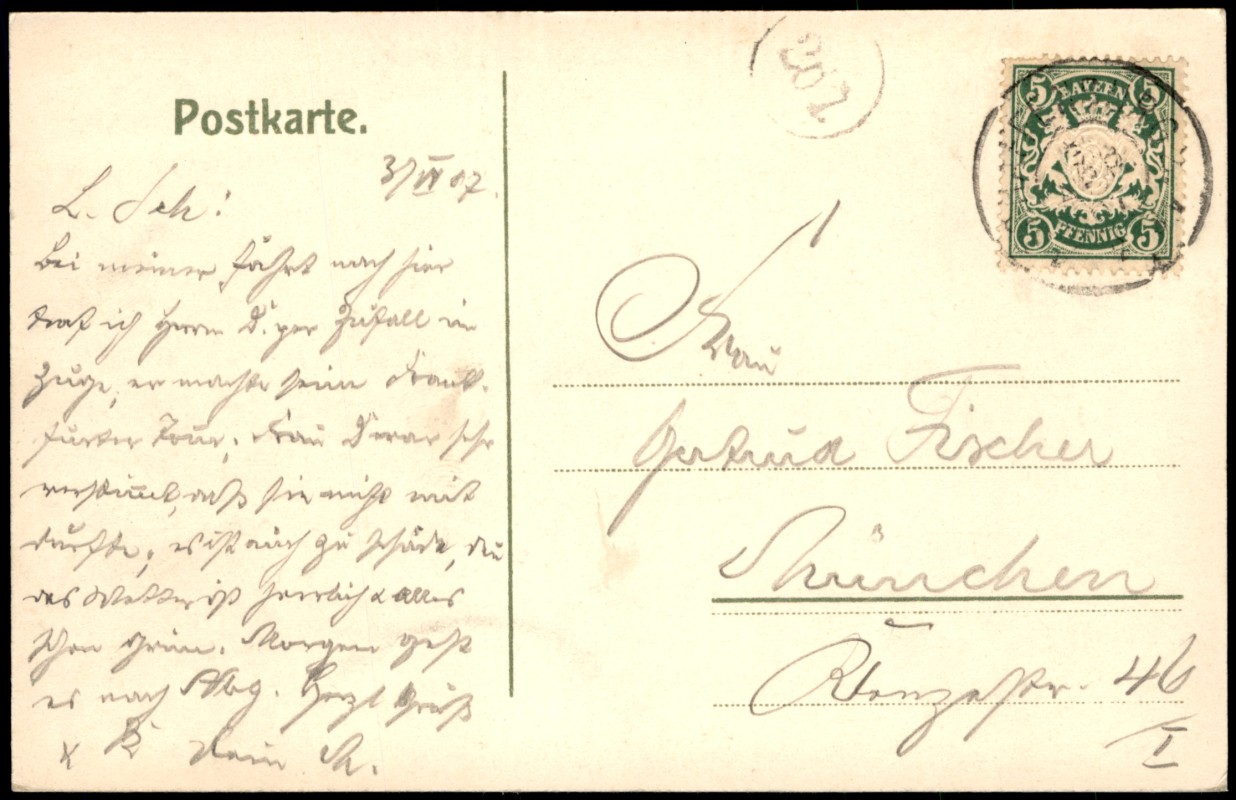 Postkarte.
3/VI 07.
L. Sch:
Bei meiner Fahrt nach hier
traf ich Herrn D. per Zufall im
Zuge, er machte seine Frank-
furter Tour. Frau D war sehr
verstimmt, daß sie nicht mit
durfte, es ist auch zu schade, den
das Wetter ist herrlich & alles
schon grün. Morgen geht
es nach Abg. Herzl Gruß
& K Dein
202
BAYERN
5 5
5 PFENNIG 5
Frau
Gertrud Fischer
München
46
I